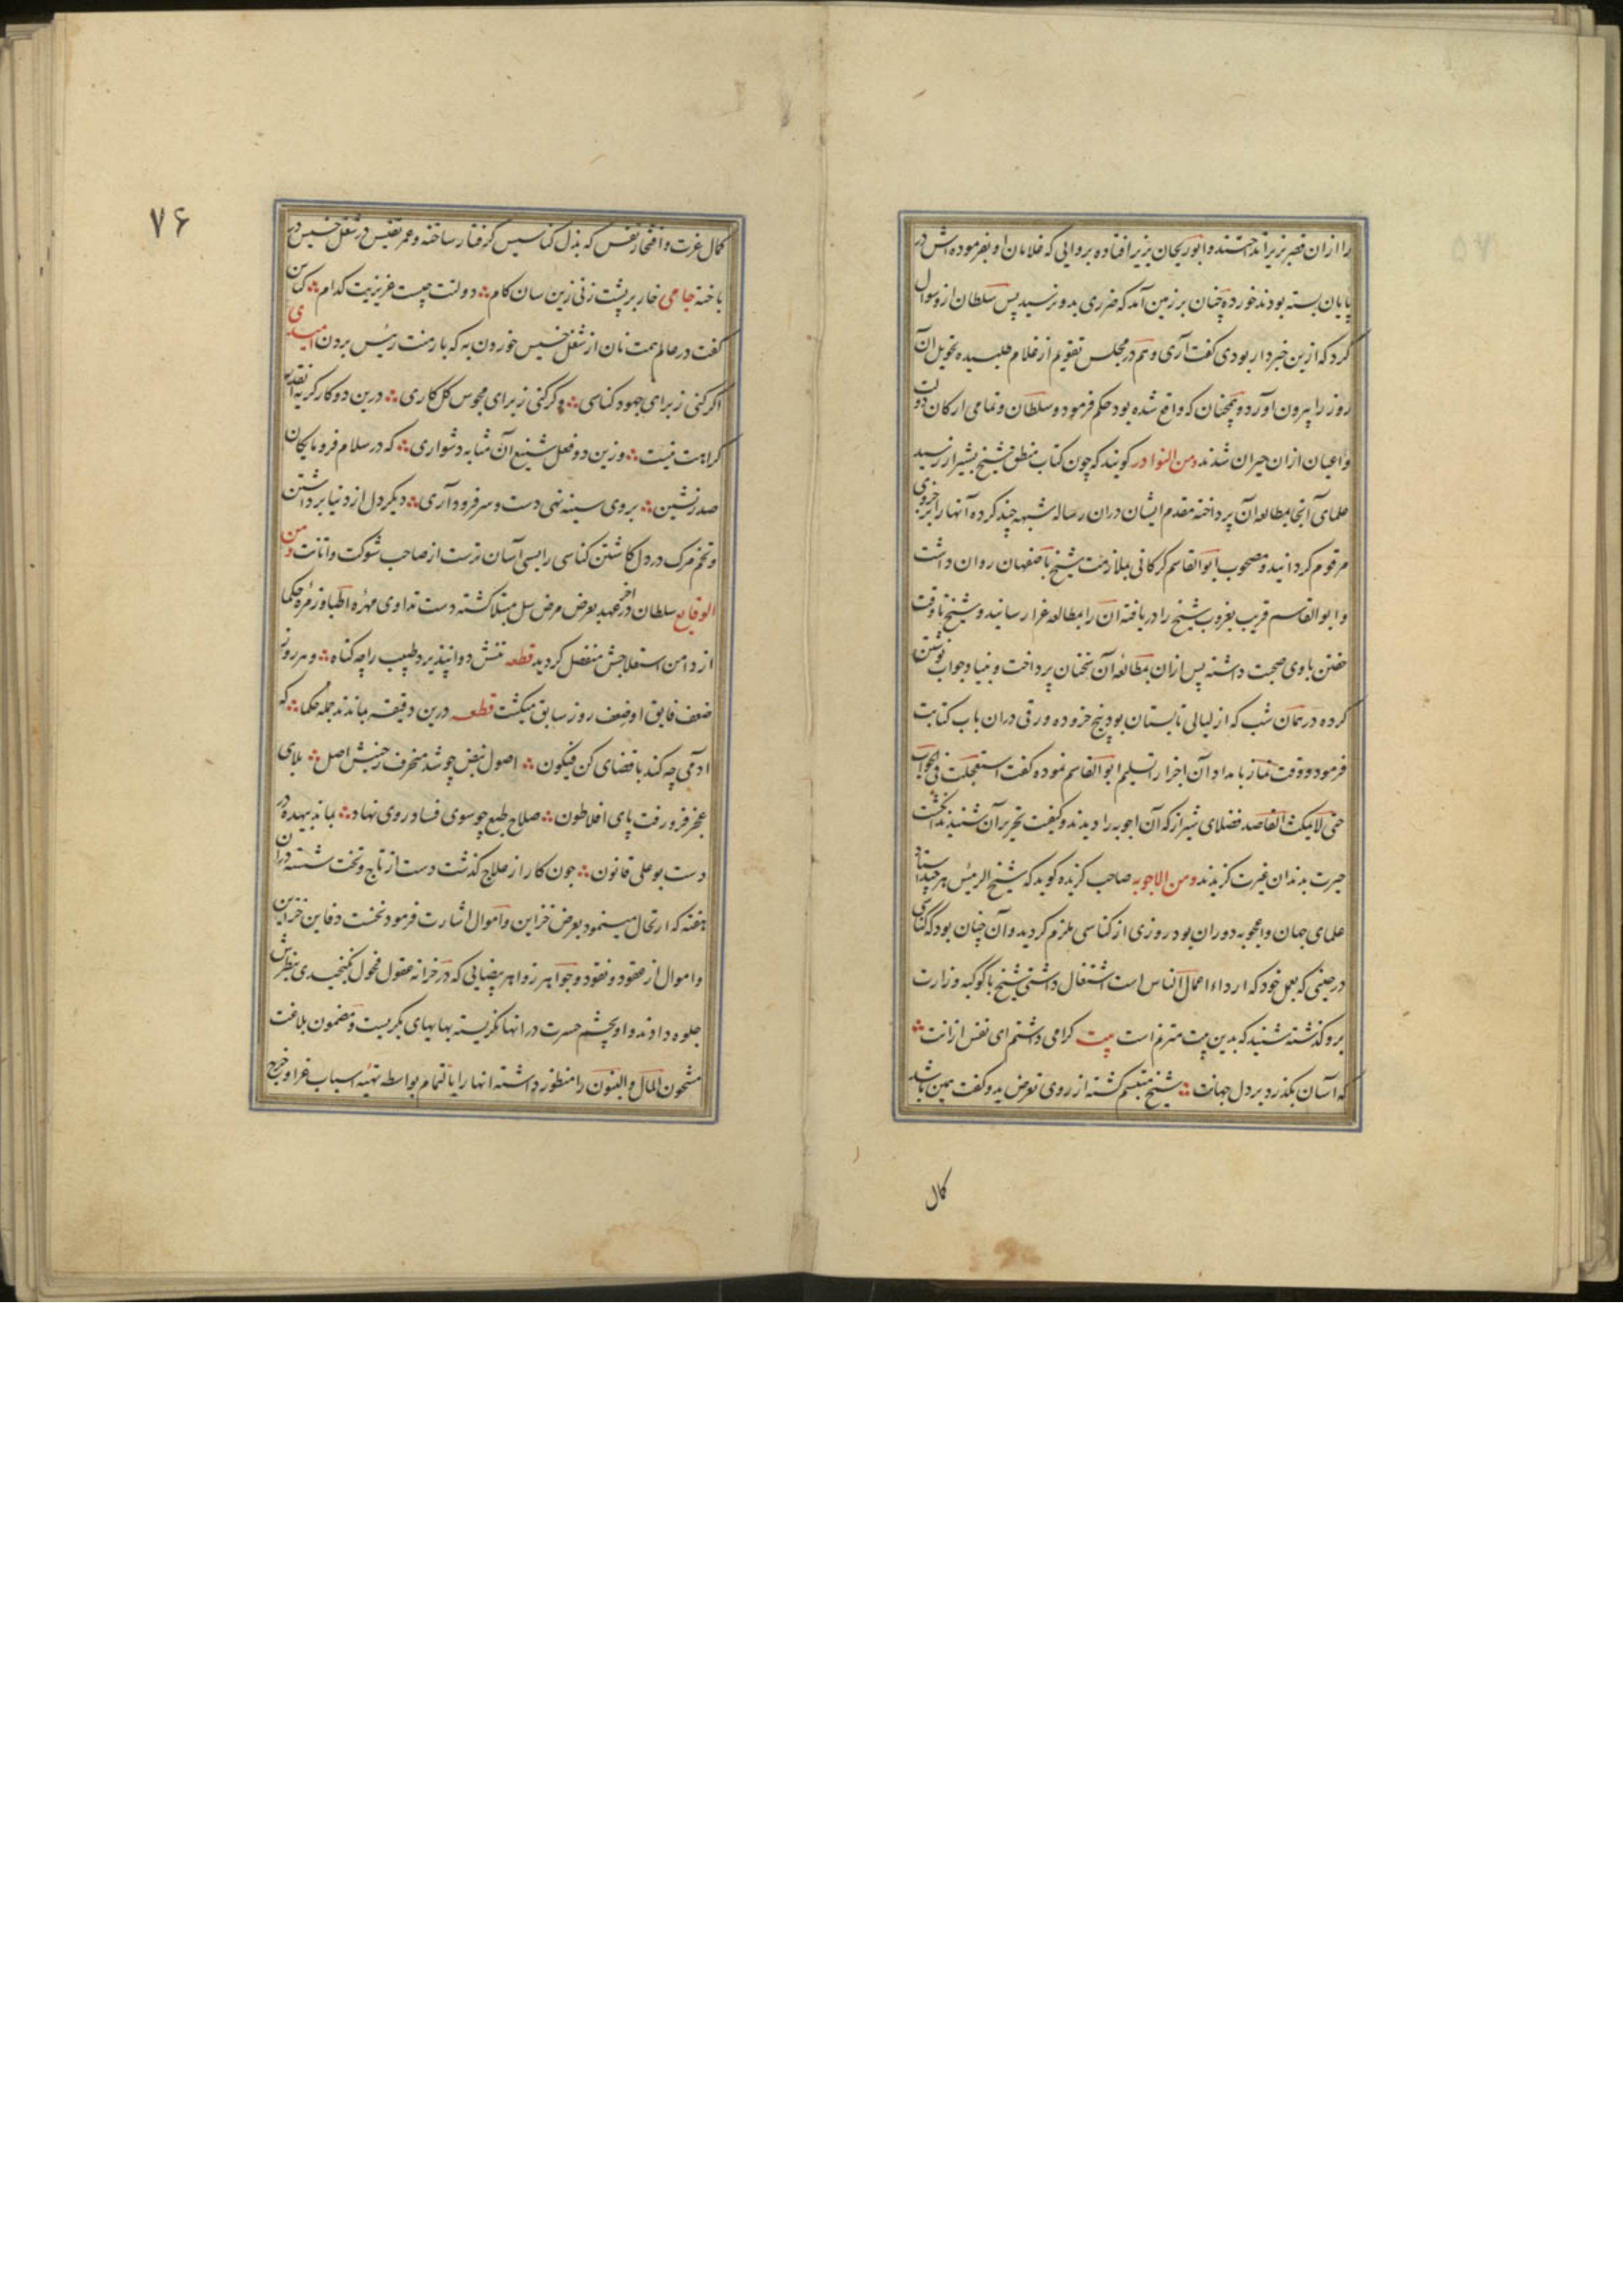 را ازان قصر بزیر انداختند و ابوریحان بزیر افتاده بر دوایی که غلامان او بفرموده اش در
پایان بسته بودند خورده چنان بر زمین آمد که ضرری بدو نرسید پس سلطان ازو سوال
کرد که ازین خبردار بودی گفت آری و هم در مجلس تقویم از غلام طلبیده تحویل آن
روز را بیرون آورد و همچنان که واقع شده بود حکم فرموده و سلطان و تمامی ارکان دولت
و اعیان ازان حیران شدند ومن النوادر کویند که چون کتاب منطق شیخ بشیراز رسید
علمای آنجا بمطالعه آن پرداخته مقدم ایشان دران رساله شبهه چند کرده آنها را بر جزوی
مرقوم کردانید و مصحوب ابوالقاسم کرکانی بملازمت شیخ باصفهان روان داشت
و ابوالقاسم قریب بغروب شیخ را دریافته آن را بمطالعه غرا رسانید و شیخ تا وقت
خفتن با وی صحبت داشته پس ازان بمطالعه آن سخنان پرداخت و بنیاد جواب نوشتن
کرده در همان شب که از لیالی تابستان بود پنج جزو ده ورقی دران باب کتابت
فرمود و وقت نماز بامداد آن اجزا را تسلیم ابوالقاسم نموده کفت استعجلت فی الجواب
حتی لا یمکث القاصد فضلای شیراز که آن اجوبه را دیدند و کیفیت تحریر آن شنیدند انکشت
حیرت بدندان غیرت کزیدند ومن الاجوبه صاحب کزیده کوید که شیخ الرئیس هر چند استاد
علمای جهان و اعجوبه دوران بود روزی از کناسی ملزم کردید و آن چنان بود که کناسی
در حینی که بعمل خود که ارداء اعمال الناس است اشتغال داشتی شیخ با کوکبه وزارت
برو کذشته شنید که بدین بیت مترنم است بیت کرامی داشتم ای نفس ازانت
که آسان بکذرد بر دل جهانت شیخ متبسم کشته از روی تعرض بدو کفت همین باشد
کمال
۷۶
کمال عزت و افتخار نفس که بذل کناسیس کرفتار ساخته و عمر نفیس در شغل خسیس در
باخته جامی خار بر پشت زنی زین سان کام دولتت چیست عزیزیت کدام کناس
کفت در عالم همت نان از شغل خسیس خوردن به که بار منت رئیس بردن امیدی
اکر کنی ز برای جهود کناسی و کر کنی ز برای مجوس کل کاری درین دو کار کریه انقدر
کراهت نیست وزین دو فعل شنیع آن مثابه دشواری که در سلام فرومایکان
صدر نشین بروی سینه نهی دست و سر فرود آری دیکر دل از دنیا برداشتن
و تخم مرک در دل کاشتن کناسی را بسی آسان ترست از صاحب شوکت و اثاثت ومن
الوقایع سلطان در آخر عهد بعرض مرض سل مبتلا کشته دست تداوی مهره اطبا و زمره حکما
از دامن استعلاجش منفصل کردید قطعه تنش دوا نپذیرد طبیب را چه کناه و هر روز
ضعف فایق او ضعف روز سابق میکشت قطعه درین دقیقه بماندند جمله حکما که
آدمی چه کند با قضای کن فیکون اصول نبض چو شد منحرف ز جنبش اصل بلای
عجز فرو رفت پای افلاطون صلاح طبع چو سوی فساد روی نهاد بماند بیهده در
دست بوعلی قانون چون کار از علاج کذشت دست از تاج و تخت شسته دران
هفته که ارتحال مینمود بعرض خزاین و اموال اشارت فرمود نخست دفاین خزاین
و اموال از عقود و نقود و جواهر زواهر بیضایی که در خزانه عقول فحول نکنجیدی بنظرش
جلوه دادند و او بچشم حسرت در آنها نکریسته بهایهای بکریست و مضمون بلاغت
مشحون المال و البنون را منظور داشته انها را باتمام بواسطه تهیه اسباب غزا و خرج